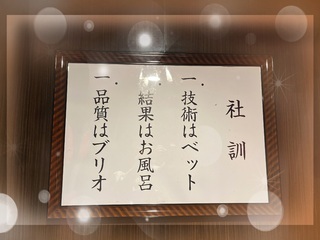 社訓
一.技術はベット
一.結果はお風呂
一.品質はブリオ